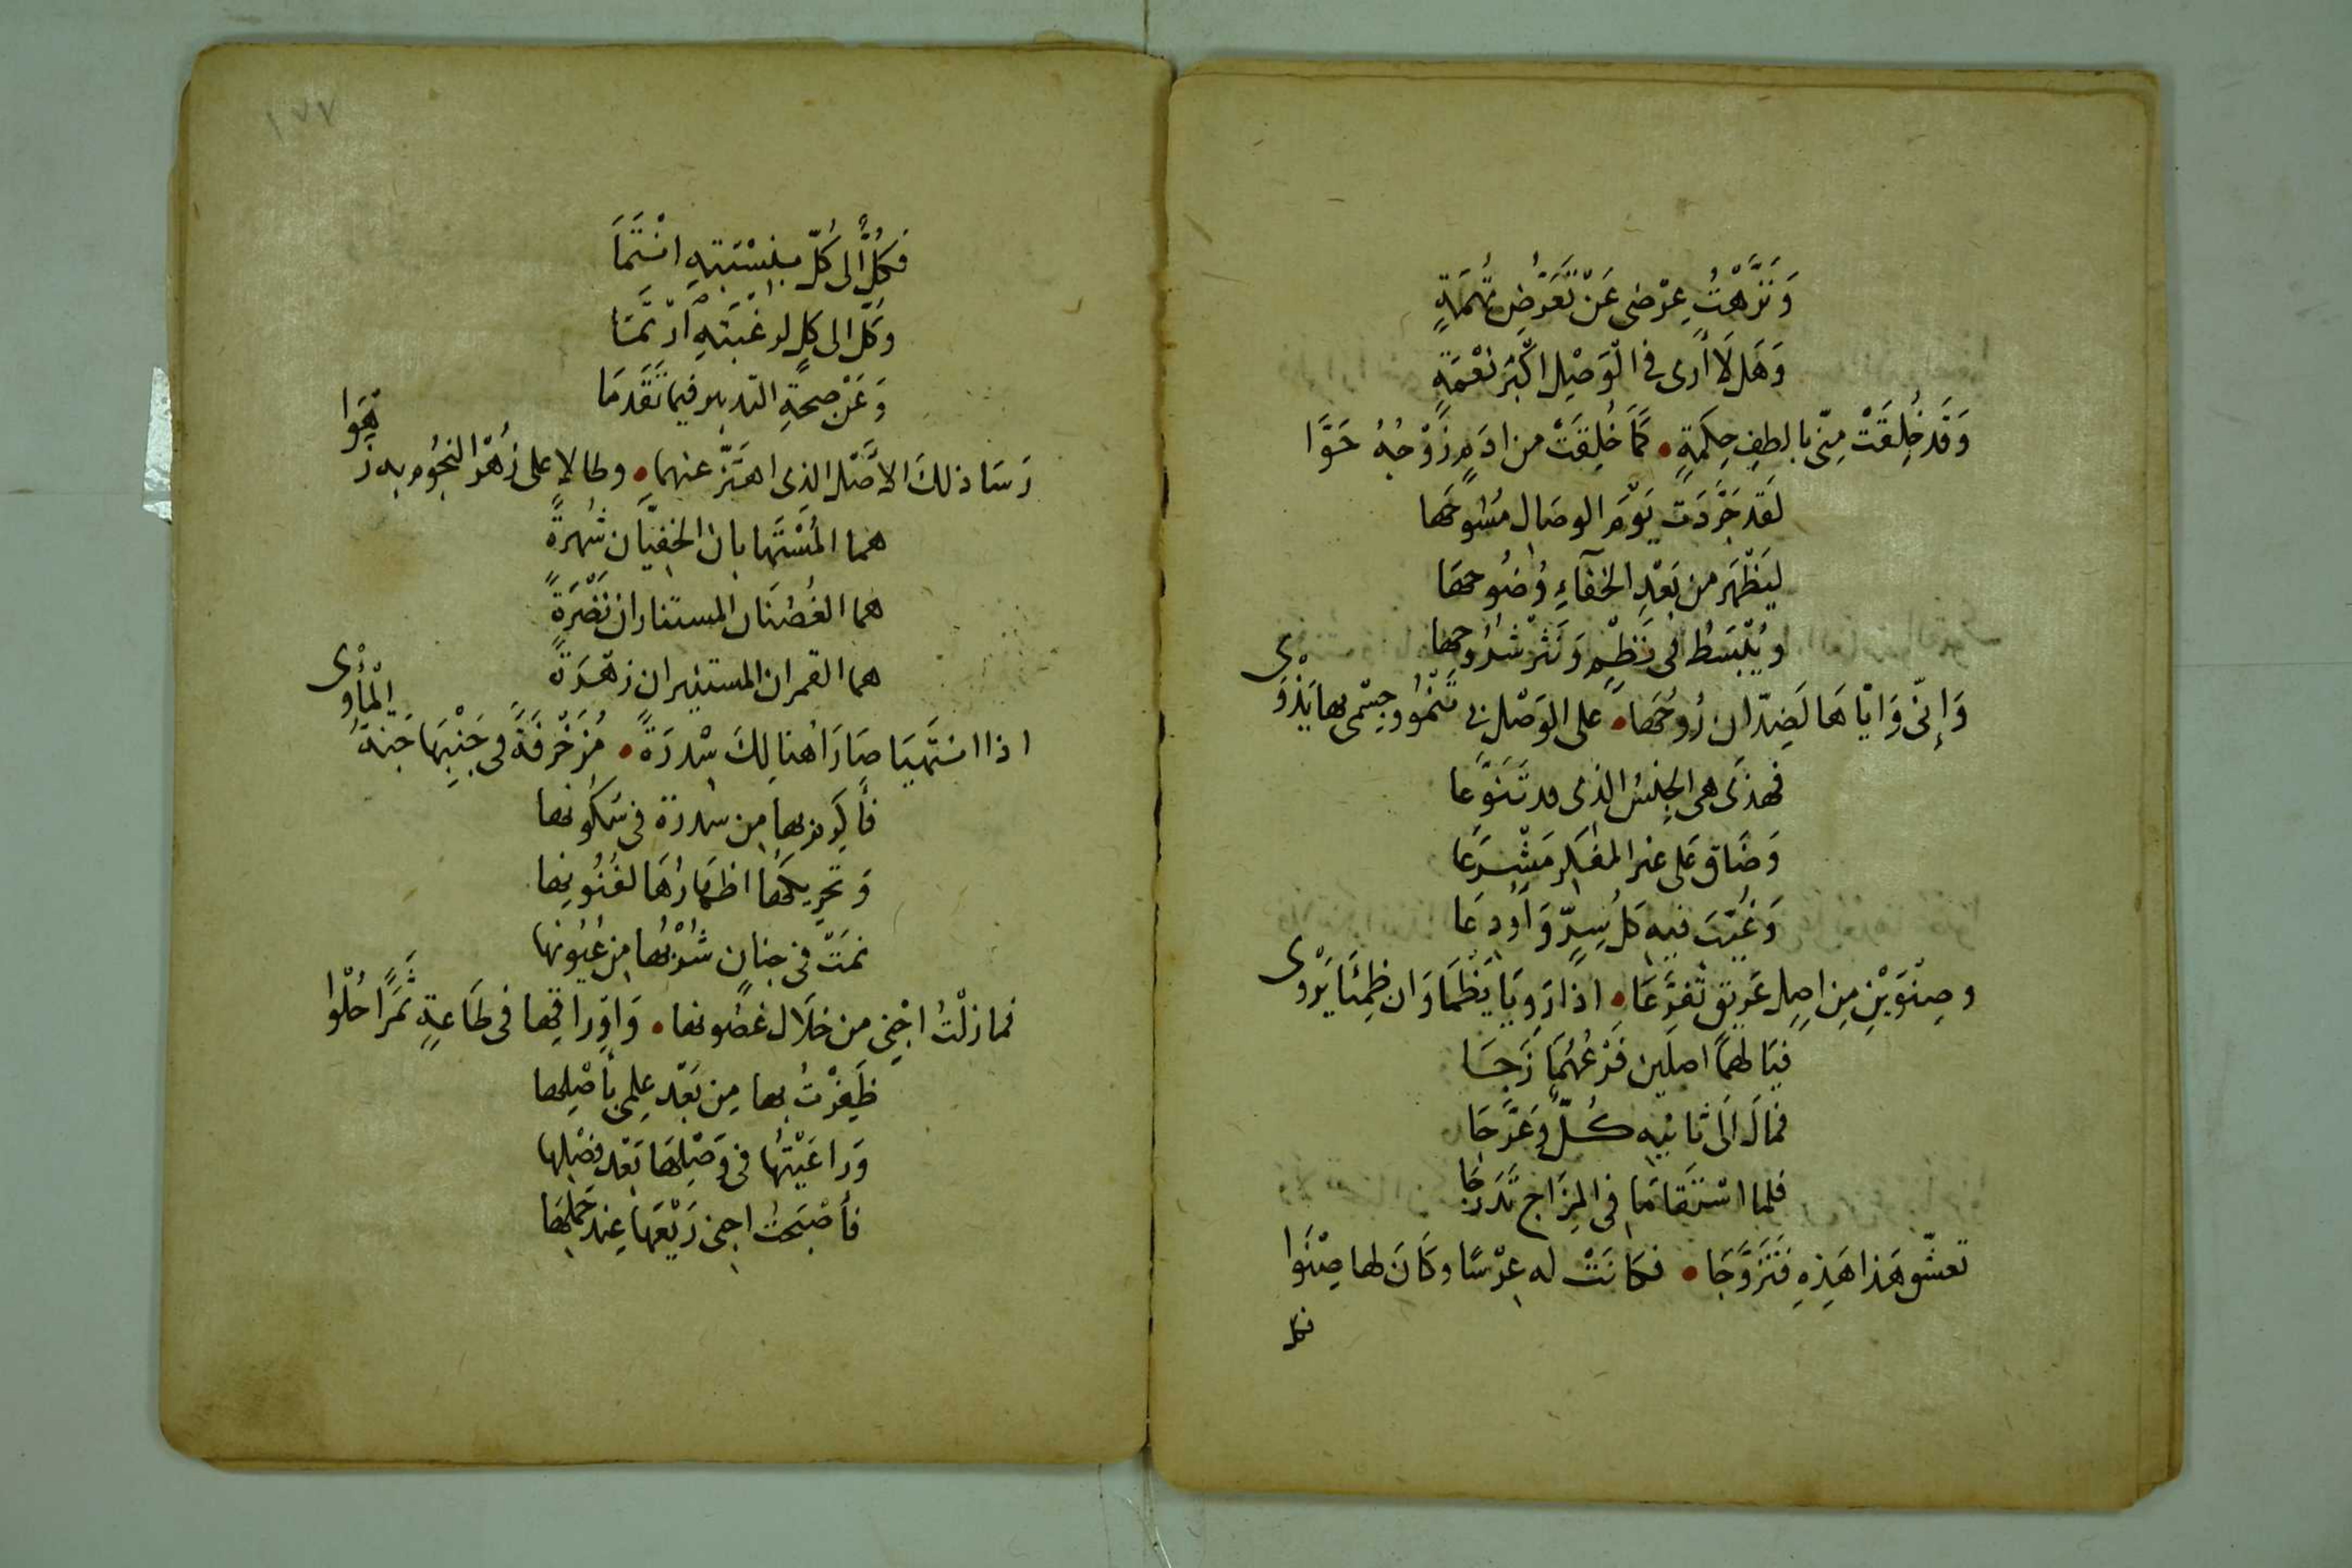 وَنَزَّهْتُ عِرْضى عَنْ تَعَرُّضِ تُهْمَةٍ
وَهَل لَا أرى في الْوَصْلِ اكْبَرَ نِعْمَةٍ
وَقَد خُلِقَتْ مِنّى بالطفِ حِكمَةٍ • كَمَا خُلِقَتْ من ادَمٍ زَوْجُهُ حَوَّا
لَقَد جَرَّدَت يَوْمَ الوصَالِ مُسُوحَهَا
ليَظْهَر من بَعْدِ الخفَآءِ وُضُوحهَا
ويُبْسَطُ فى نَظْمٍ وَنَثْرٍ شُرُوحها
وَإنّى وَايّاهَا لَضِدّان رُوحُهَا • على الوَصْلِ بى تَنْمُوا وجسْمى بها يَذْوَى
فهذى هى الجنسُ الذى قد تَنَوَّعَا
وَضَاقَ عَلى غير المفَكِر مَشْرَعَا
وَغُيّبَ فيه كل سِرٍّ وَاُودِعَا
وصِنْوَيْنِ مِن اصِلٍ عَرِيقٍ تَفَرَّعَا • اذَا رَوِيَا يَظْمَا وَان ظمِئَا يَرْوى
فيَا لهمَا اصلَين فَرْعُهُمَا زَجَا
فمالَ الَى ثانيه كُلٌّ وعَرَّجَا
فلما اسْتَقامَا فى المِزَاج تَدَرجَا
تعشّق هَذا هَذِهِ فَتَزَوَّجَا • فكانَتْ له عِرْسًا وكَانَ لها صِنْوَا
فكل
١٧٧
فَكُلٌّ الى كُلّ بنِسْبَتِهِ انْتَمَا
وَكُلّ الى كلٍ لرغْبَتهِ ارْتمَا
وَعَنْ صحةِ التدبير فيما تَقَدمَا
رَسَا ذلكَ الاصْل الذى اهتَزّ عنهما • وطالا على زُهْر النجُوم به زهوا
هما المُسْتَهابان الخفيّان شُهرةً
هما الغُصْنان المستناران نَضْرَةً
هما القمران المستنيران زهْرَةً
اذا انتَهيَا صَارَا هنالِكَ سْدرَةً • مُزَخْرفَةً فى جَنْبِهَا جَنةُ المأوى
فأَكرم بها مِن سْدرة فى سكُونها
وَتحريكهَا اظهَارُهَا لفُنُونِها
نمَتْ فى جنانٍ شُرْبُها من عُيُونها
فما زلْتُ اجْنِى من خلَال غصُونها • وَاوراقِها فى طَاعةٍ ثَمَرًا حُلْوا
ظَفِرْتُ بها مِن بَعْد عِلمى بأصْلِها
وَراعَيْتُها فى وَصْلِهَا بَعْد فصْلِها
فأصْبَحتُ اجنى رَيْعَها عِند حَمْلِهَا